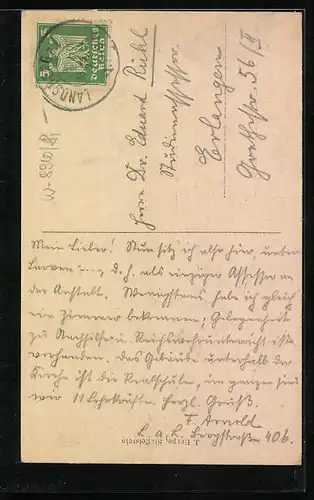 5
Deutsches
Reich
LANDS
W-8910/81
Herrn Dr. Eduard Rühl
Studienprofessor
Erlangen
Goethestr. 56/II
Mein Lieber! Nun sitz ich also hier, unter
Larven ... d. h. als einziger Assessor an
der Anstalt. Wenigstens habe ich gleich
ein Zimmer bekommen; Gelegenheit
zu Nachhilfe- u. Reichswehrunterricht ist
vorhanden. Das Gebäude unterhalb der
Kirche ist die Realschule, im ganzen sind
wir 11 Lehrkräfte. Herzl. Gruß.
F. Arnold
L. a. L. Bergstraße 406.
J. Herpe, Staffelstein